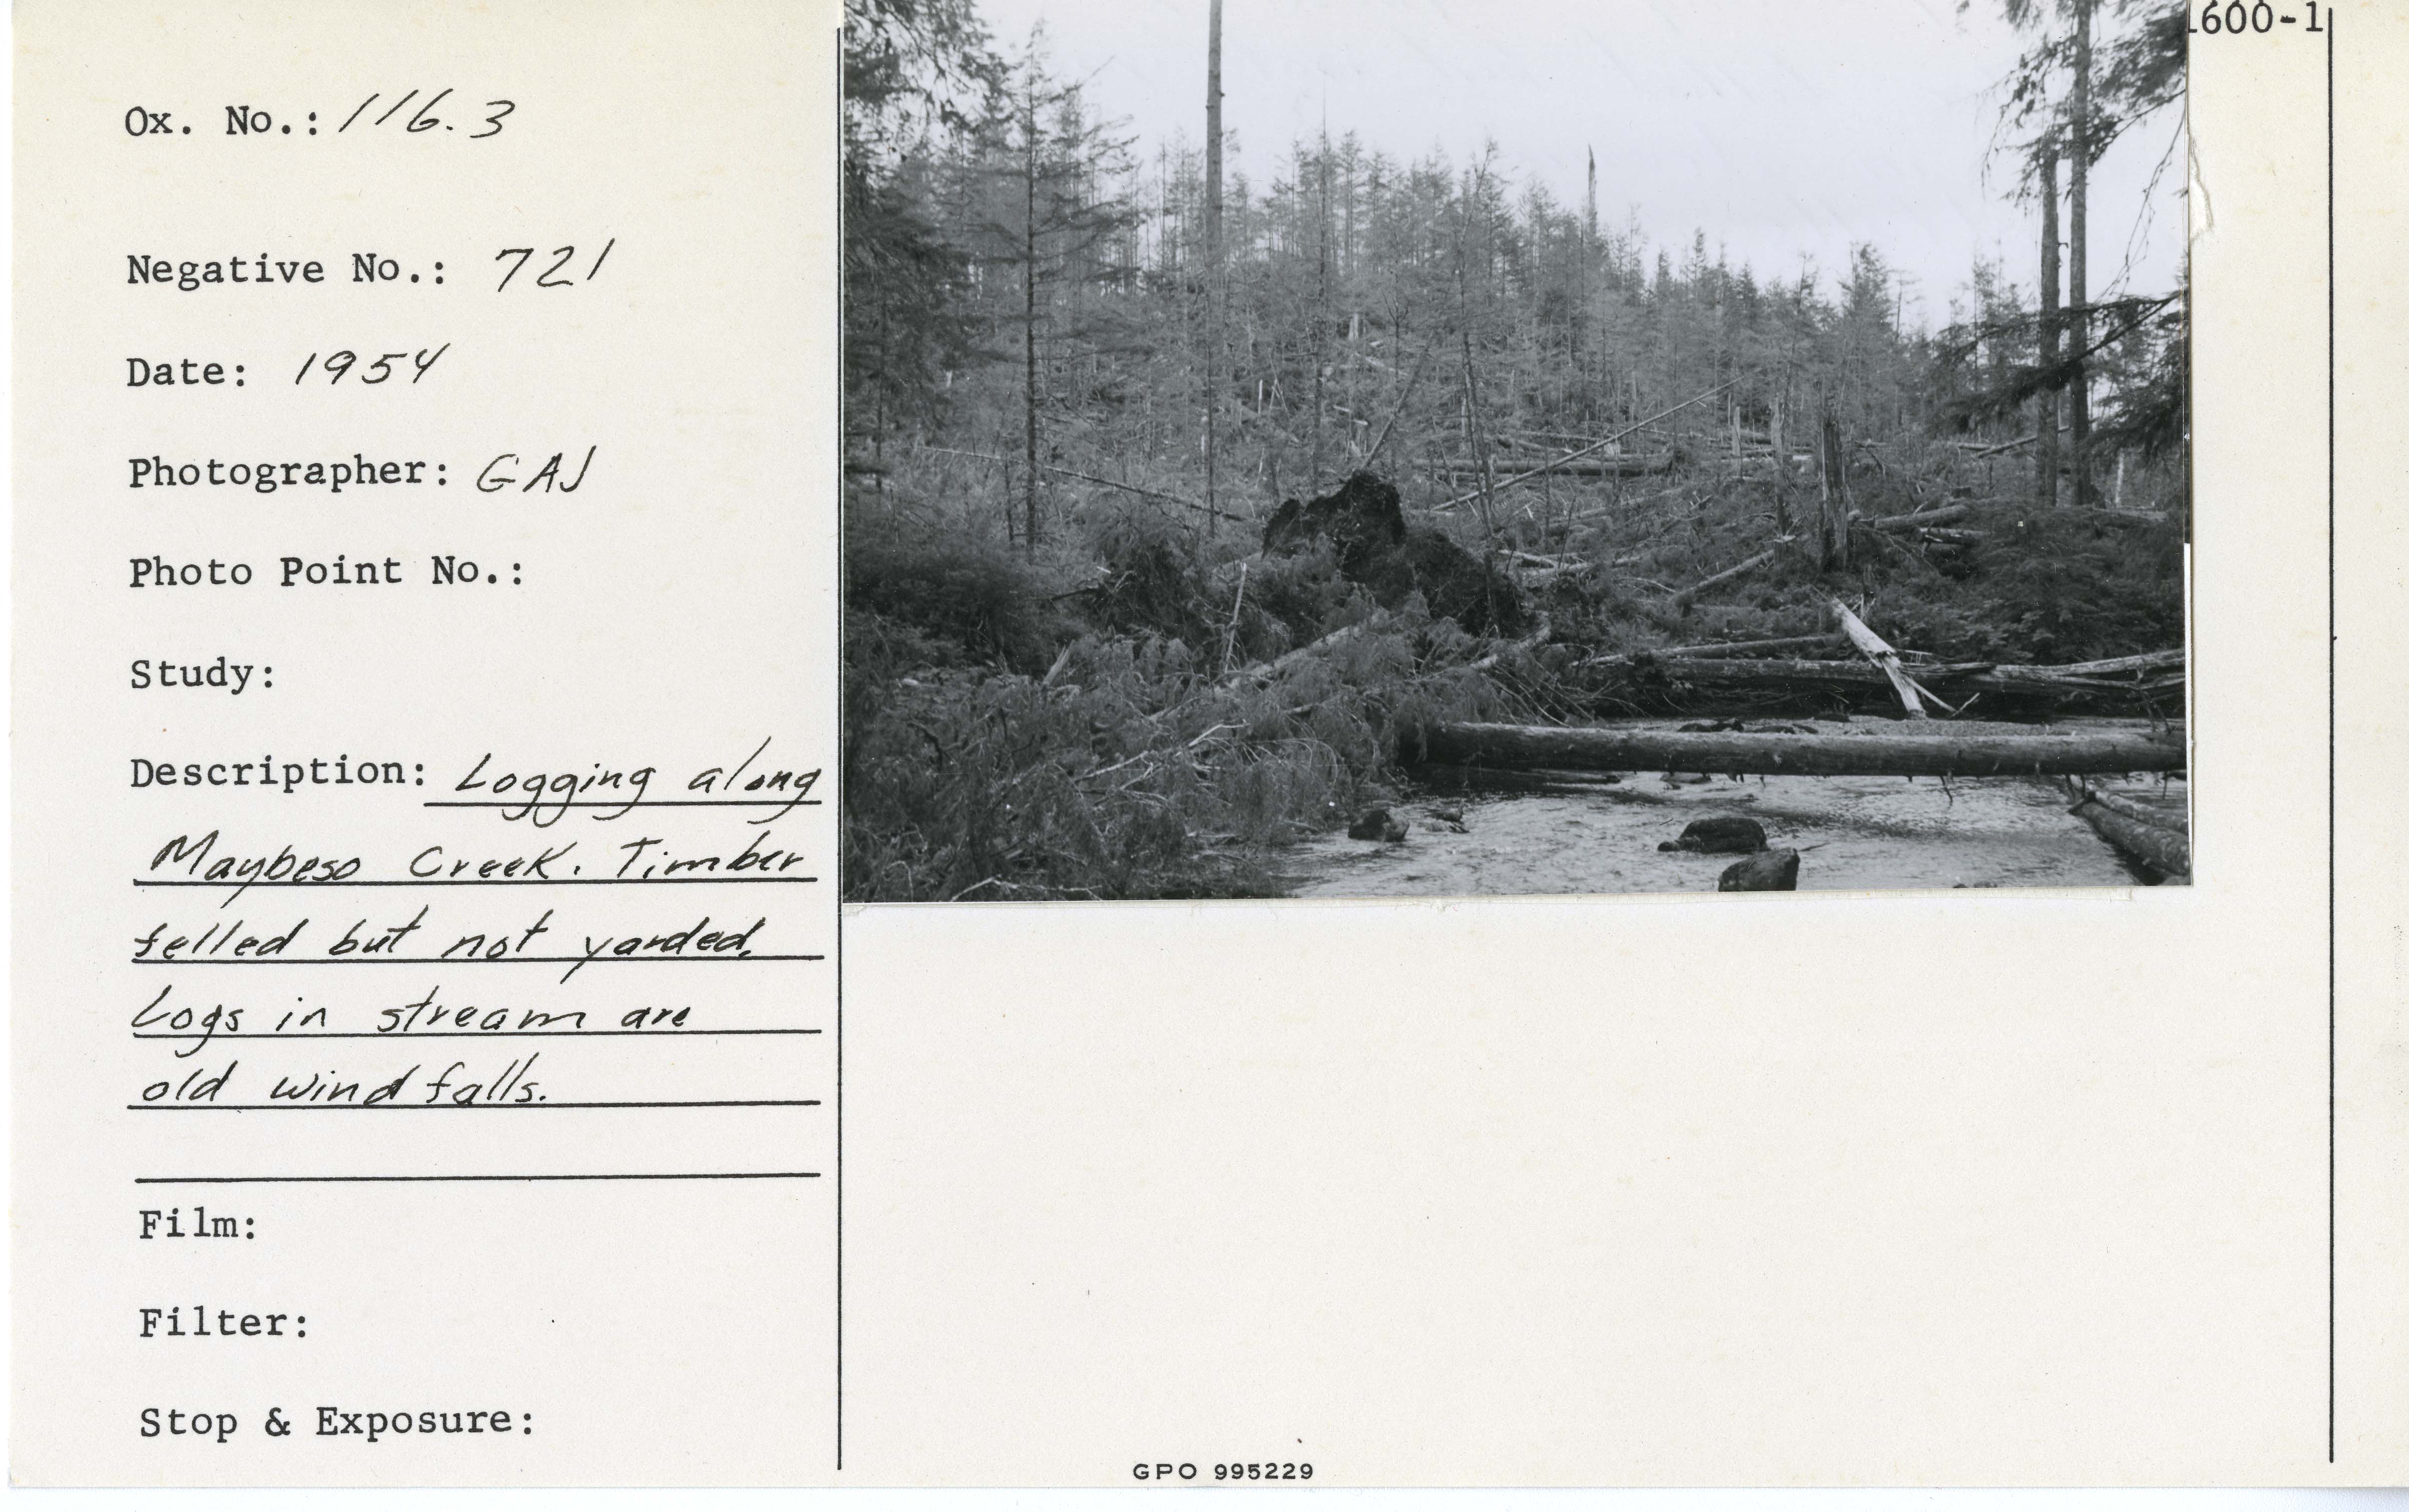 1600-1
Ox. No.: 116.3
Negative No.: 721
Date: 1954
Photographer: GAJ
Photo Point No.:
Study:
Description: Logging along
Maybeso Creek. Timber
felled but not yarded.
Logs in stream are
old windfalls.
Film:
Filter:
Stop & Exposure:
GPO 995229